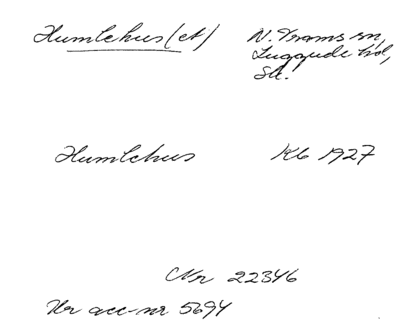 Humlehus(et) N. Vrams sn,
Luggude hd,
Sk.
Humlehus Kb 1927
CNr 22346
Ur acc-nr 5694